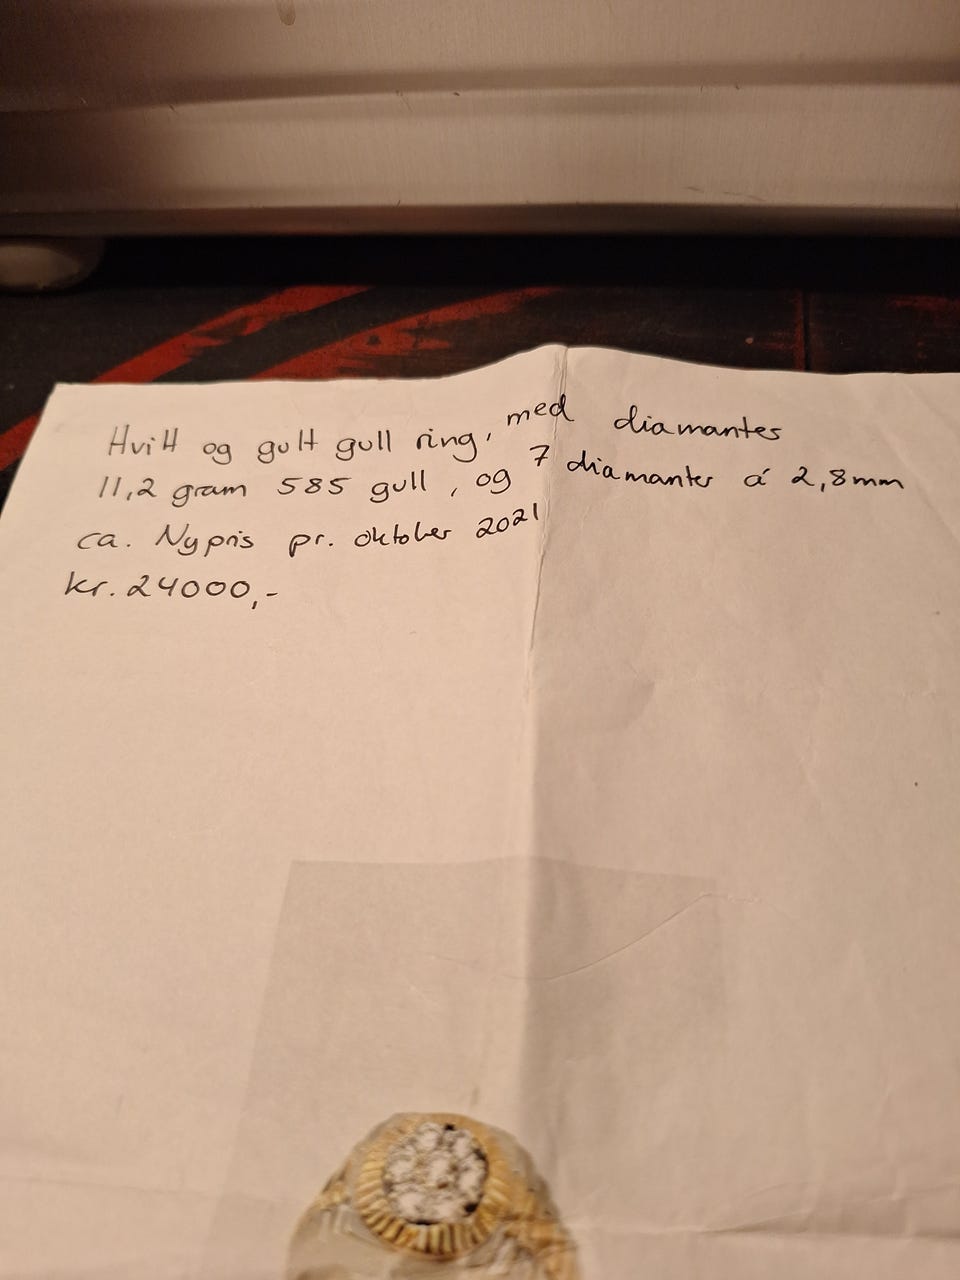 Hvitt og gult gull ring, med diamantes
11,2 gram 585 gull, og 7 diamanter á 2,8mm
ca. Nypris pr. oktober 2021
kr. 24000,-